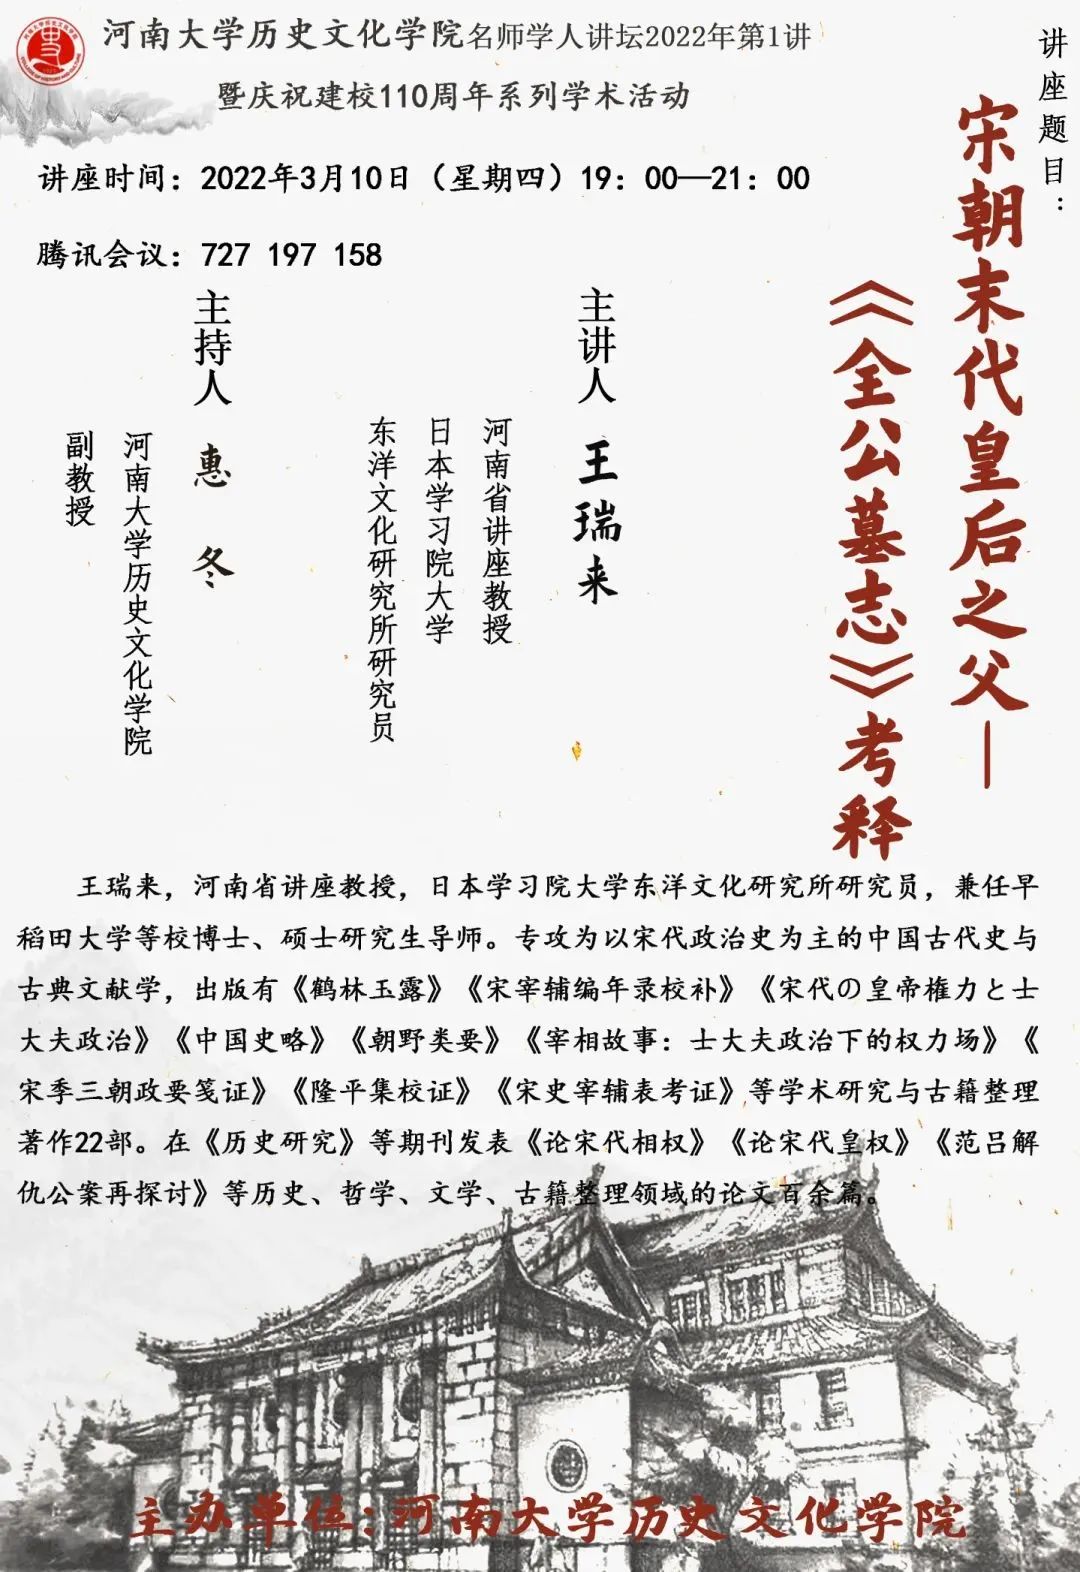 河南大学历史文化学院名师学人讲坛2022年第1讲
暨庆祝建校110周年系列学术活动
讲座时间：2022年3月10日（星期四）19：00—21：00
腾讯会议：727 197 158
讲座题目：
宋朝末代皇后之父—
《全公墓志》考释
主讲人 王瑞来
河南省讲座教授
日本学习院大学
东洋文化研究所研究员
主持人 惠冬
河南大学历史文化学院
副教授
王瑞来，河南省讲座教授，日本学习院大学东洋文化研究所研究员，兼任早
稻田大学等校博士、硕士研究生导师。专攻为以宋代政治史为主的中国古代史与
古典文献学，出版有《鹤林玉露》《宋宰辅编年录校补》《宋代の皇帝権力と士
大夫政治》《中国史略》《朝野类要》《宰相故事：士大夫政治下的权力场》《
宋季三朝政要笺证》《隆平集校证》《宋史宰辅表考证》等学术研究与古籍整理
著作22部。在《历史研究》等期刊发表《论宋代相权》《论宋代皇权》《范吕解
仇公案再探讨》等历史、哲学、文学、古籍整理领域的论文百余篇。
主办单位:河南大学历史文化学院